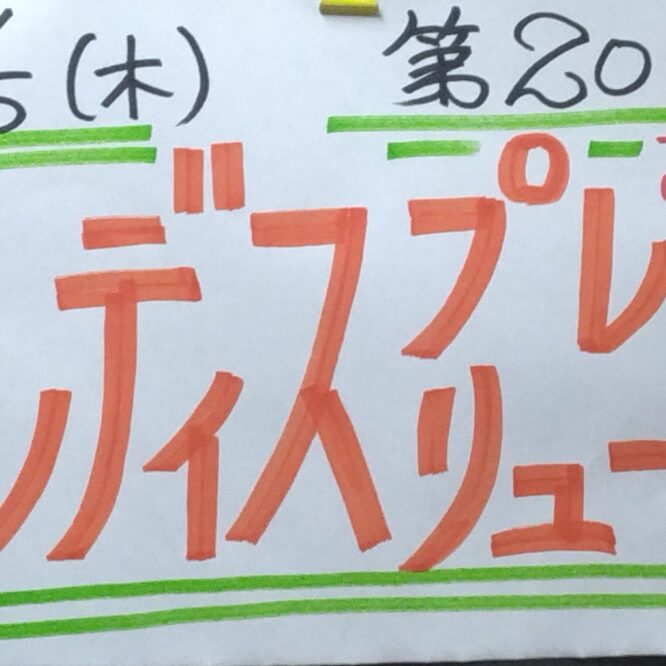 5(木) 第20
ディスプレ
リュー